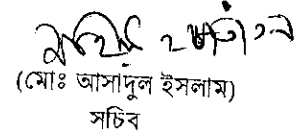 (মোঃ আসাদুল ইসলাম)
সচিব